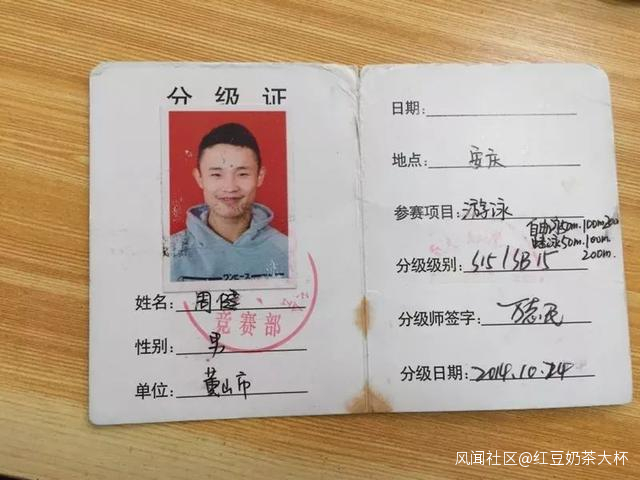 分级证
ワンピース
姓名：周健
竞赛部
性别：男
单位：黄山市
日期：
地点：安庆
参赛项目：游泳
自由泳50m.100m200
蛙泳50m.100m.
200m.
分级级别：S15/SB15
分级师签字：
分级日期：2014.10.24
风闻社区@红豆奶茶大杯